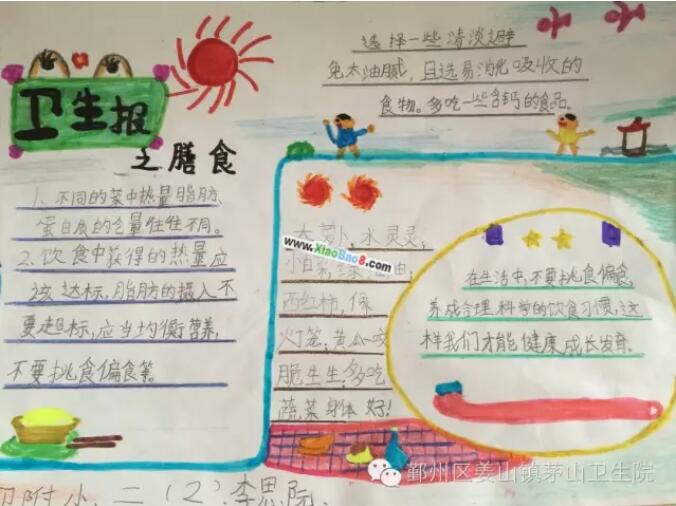 卫生报
之膳食
1、不同的菜中热量脂肪、
蛋白质的含量往往不同。
2、饮食中获得的热量应
该达标，脂肪的摄入不
要超标，应当均衡营养，
不要挑食偏食等。
选择一些清淡避
免太油腻，且选易消化吸收的
食物。多吃一些含钙的食品。
大萝卜，水灵灵；
小白菜，绿油油；
西红柿，像
灯笼；黄瓜咬
脆生生；多吃
蔬菜身体好！
www.XiaoBao8.com
在生活中，不要挑食偏食，
养成合理科学的饮食习惯，这
样我们才能健康成长发育。
附小、二（2）李思
鄞州区姜山镇茅山卫生院